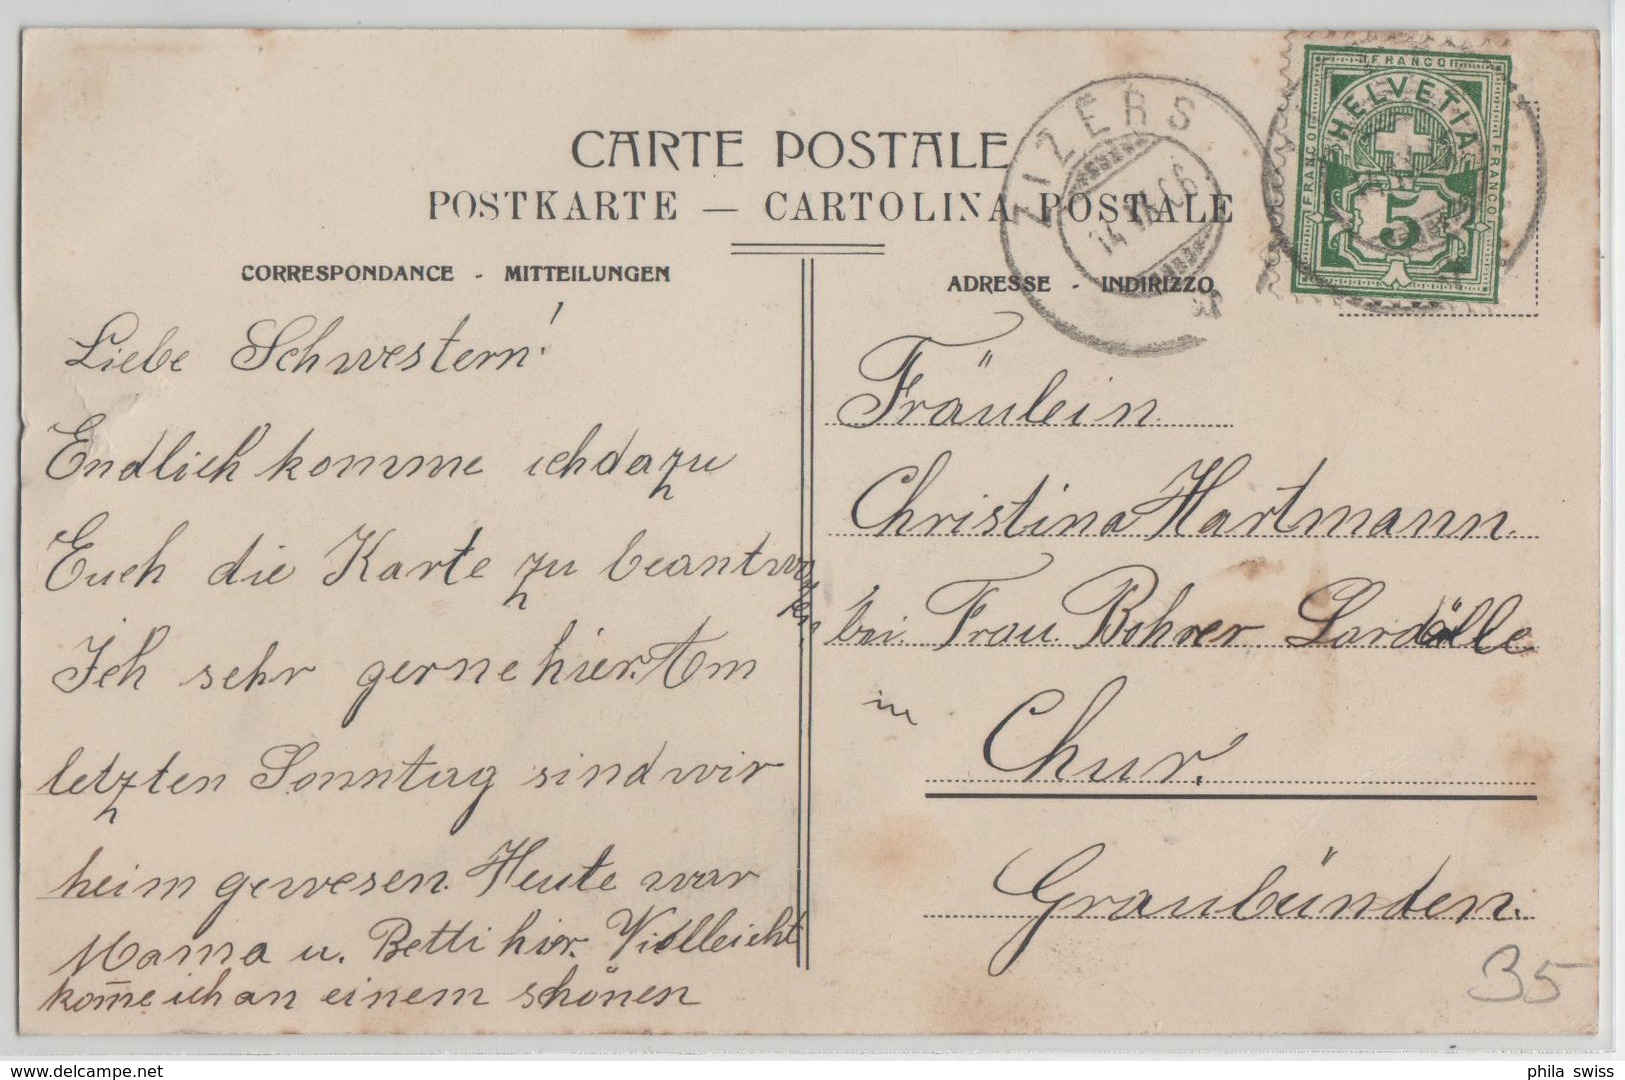 CARTE POSTALE
POSTKARTE — CARTOLINA POSTALE
CORRESPONDANCE - MITTEILUNGEN
ADRESSE - INDIRIZZO
ZIZERS
14 VI 06
FRANCO
FRANCO
FRANCO
HELVETIA
5
Liebe Schwestern!
Endlich komme ich dazu
Euch die Karte zu beantwor
ten
Ich sehr gerne hier. Am
letzten Sonntag sind wir
heim gewesen. Heute war
Mama u. Betti hier. Vielleicht
kom̅e ich an einem schönen
Fräulein
Christina Hartmann.
bei Frau Bohrer
in
Chur.
Graubünden.
35
delcampe.net
phila_swiss